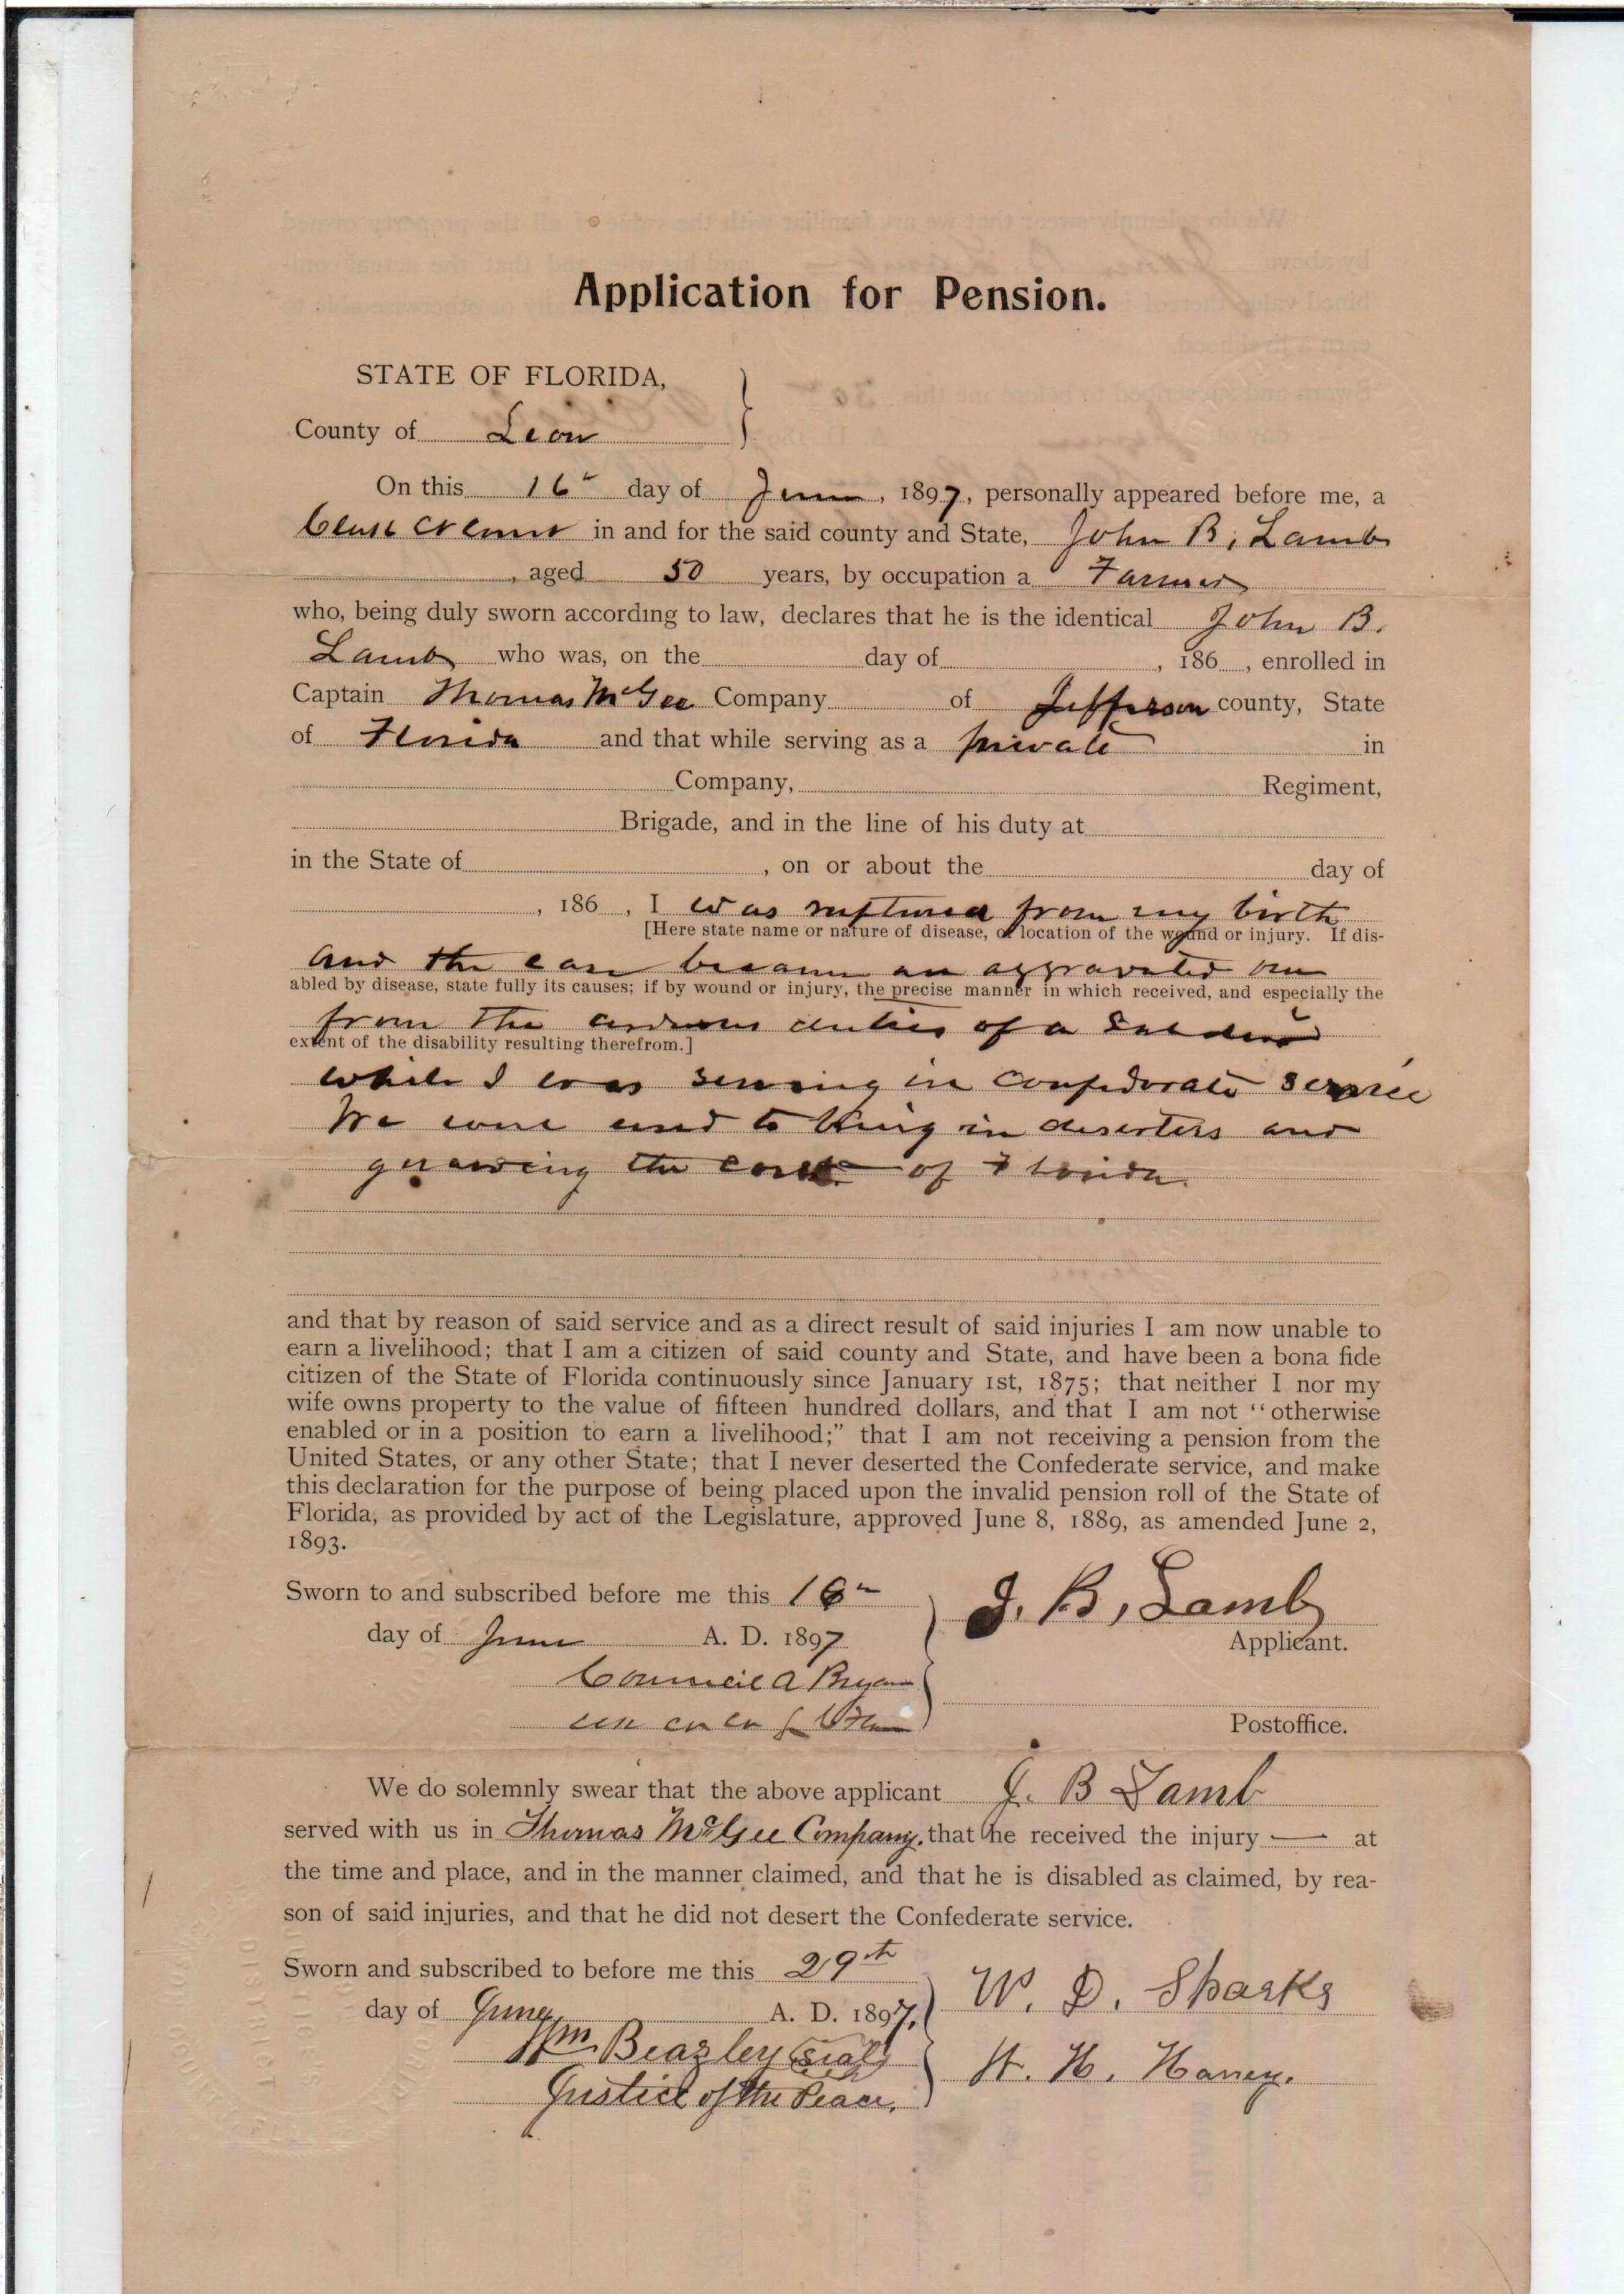 Application for Pension.
STATE OF FLORIDA,
County of Leon
On this 16 day of June, 1897, personally appeared before me, a
Clerk Ct Court in and for the said county and State, John B. Lamb
, aged 50 years, by occupation a Farmer
who, being duly sworn according to law, declares that he is the identical John B.
Lamb who was, on the day of , 186 , enrolled in
Captain Thomas McGee Company of Jefferson county, State
of Florida and that while serving as a private in
Company, Regiment,
Brigade, and in the line of his duty at
in the State of , on or about the day of
, 186 , I was ruptured from my birth
[Here state name or nature of disease, or location of the wound or injury. If dis-
and the case became an aggravated one
abled by disease, state fully its causes; if by wound or injury, the precise manner in which received, and especially the
from the arduous duties of a Soldier
extent of the disability resulting therefrom.]
while I was serving in Confederate service
We were used to bring in deserters and
guarding the coast of Florida.
and that by reason of said service and as a direct result of said injuries I am now unable to
earn a livelihood; that I am a citizen of said county and State, and have been a bona fide
citizen of the State of Florida continuously since January 1st, 1875; that neither I nor my
wife owns property to the value of fifteen hundred dollars, and that I am not "otherwise
enabled or in a position to earn a livelihood;" that I am not receiving a pension from the
United States, or any other State; that I never deserted the Confederate service, and make
this declaration for the purpose of being placed upon the invalid pension roll of the State of
Florida, as provided by act of the Legislature, approved June 8, 1889, as amended June 2,
1893.
Sworn to and subscribed before me this 16 J. B. Lamb
day of June A. D. 1897 Applicant.
Council A Bryan
Postoffice.
We do solemnly swear that the above applicant J. B Lamb
served with us in Thomas McGee Company. that he received the injury — at
the time and place, and in the manner claimed, and that he is disabled as claimed, by rea-
son of said injuries, and that he did not desert the Confederate service.
Sworn and subscribed to before me this 29th W. D. Sparks
day of June A. D. 1897.
Wm Beazley (Seal) W. H. Haney.
Justice of the Peace.